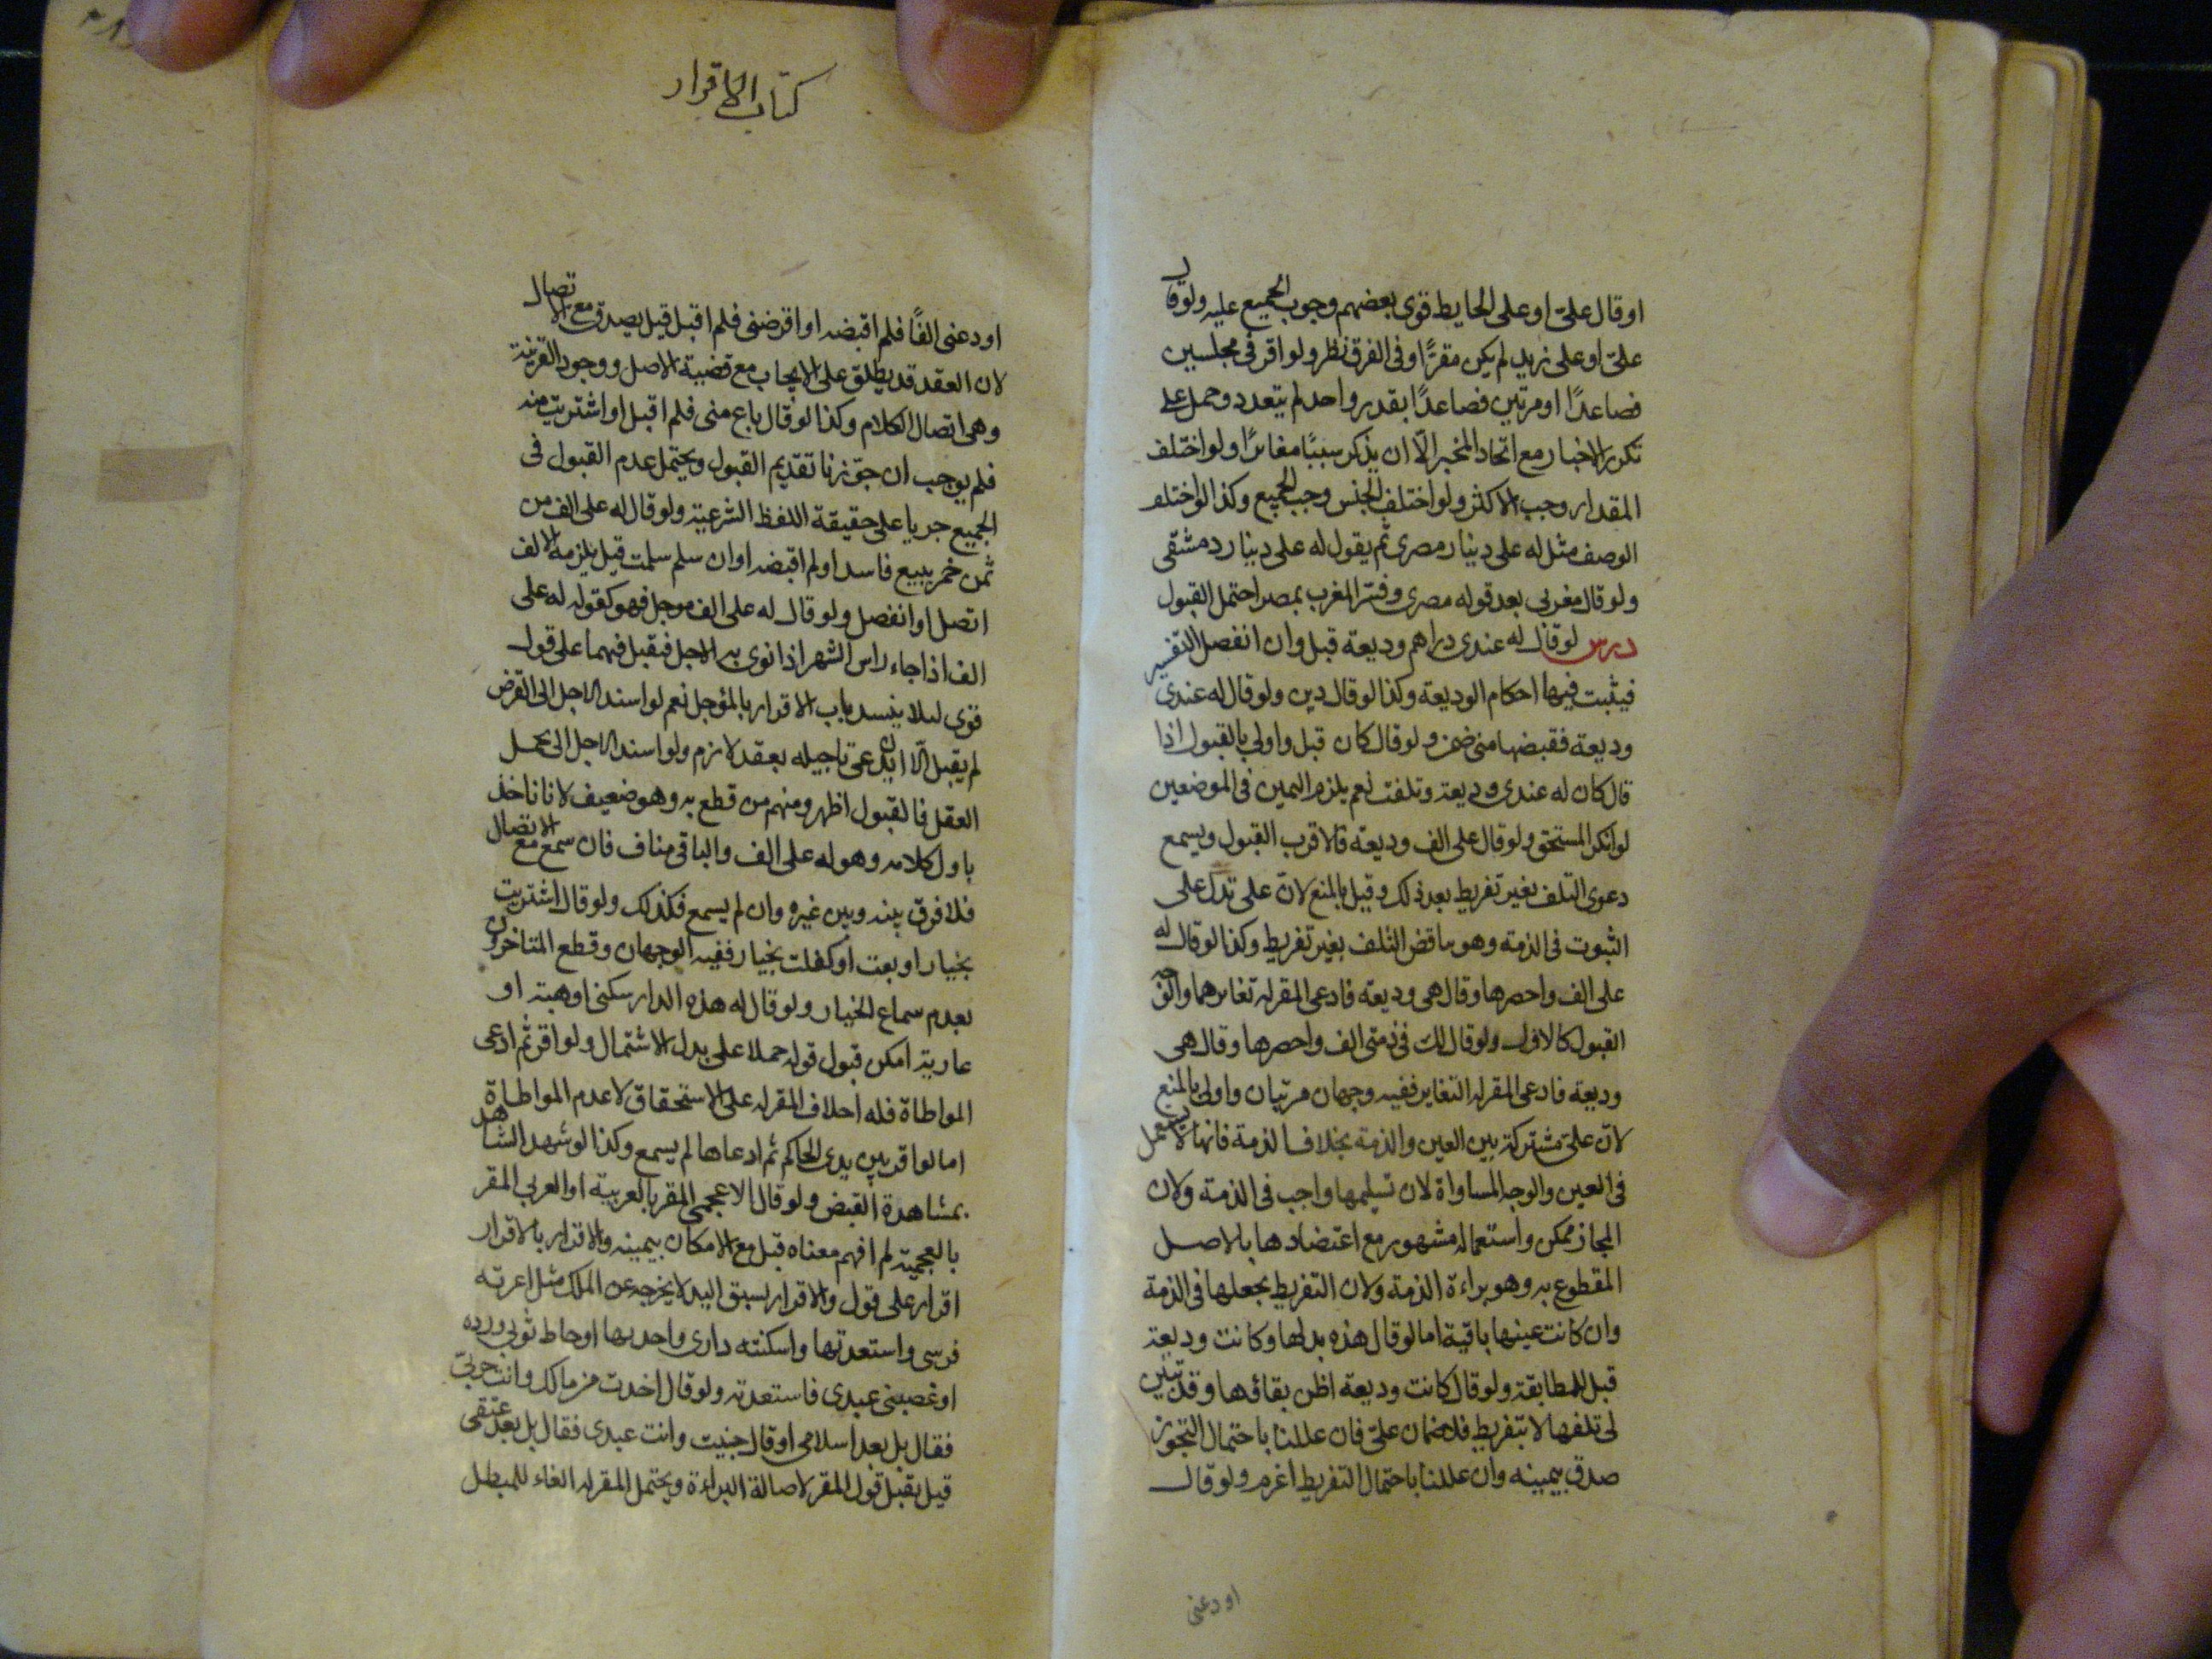 او قال علیّ او علی الحایط قوی بعضهم وجوب الجمیع علیه ولو قال
علیّ او علی زید لم یکن مقرًّا و فی الفرق نظر ولو اقر فی مجلسین
فصاعدًا او مرتین فصاعدًا بقدر واحد لم یتعدد وحمل علی
تکرر الاخبار مع اتحاد المخبر الّا ان یذکر سببًا مغایرًا ولو اختلف
المقدار وجب الاکثر ولو اختلف الجنس وجب الجمیع وکذا لو اختلف
الوصف مثل له علی دینار مصری ثم یقول له علی دینار دمشقی
ولو قال مغربی بعد قوله مصری وفسّر المغرب بمصر احتمل القبول
درس لو قال له عندی دراهم ودیعة قبل وان انفصل التفسیر
فیثبت فیها احکام الودیعة وکذا لو قال دین ولو قال له عندی
ودیعة فقبضها منی ضمن ولو قال کان قبل واولی بالقبول اذا
قال کان له عندی ودیعة وتلفت نعم یلزم الیمین فی الموضعین
لو انکر المستحق ولو قال علی الف ودیعة فالاقرب القبول ویسمع
دعوی التلف بغیر تفریط بعد ذلک وقیل بالمنع لانّ علی تدل علی
الثبوت فی الذمة وهو یناقض التلف بغیر تفریط وکذا لو قال له
علی الف واحضرها وقال هی ودیعة فادعی المقر له تغایرهما والوجه
القبول کالاول ولو قال لک فی ذمتی الف واحضرها وقال هی
ودیعة فادعی المقر له التغایر ففیه وجهان مرتبان واولی بالمنع
لانّ علیّ مشترکة بین العین والذمة بخلاف الذمة فانها لا تستعمل
فی العین والوجه المساواة لان تسلیمها واجب فی الذمة ولان
المجاز ممکن واستعماله مشهور مع اعتضادها بالاصل
المقطوع به وهو براءة الذمة ولان التفریط یجعلها فی الذمة
وان کانت عینها باقیة اما لو قال هذه بدلها وکانت ودیعة
قبل للمطابقة ولو قال کانت ودیعة اظن بقائها وقد تبیّن
لی تلفها لا بتفریط فلا ضمان علیّ فان عللنا باحتمال التجوز
صدق بیمینه وان عللنا باحتمال التفریط اغرم ولو قال
اودعنی
کتاب الاقرار
اودعنی الفًا فلم اقبضه او اقرضنی فلم اقبل قیل یصدق مع الاتصال
لان العقد قد یطلق علی الایجاب مع قضیة الاصل ووجود القرینة
وهی اتصال الکلام وکذا لو قال باع منی فلم اقبل او اشتریت منه
فلم یوجب ان جوّزنا تقدیم القبول ویحتمل عدم القبول فی
الجمیع جریا علی حقیقة اللفظ الشرعیة ولو قال له علی الف من
ثمن خمر ببیع فاسد او لم اقبضه او ان سلم سلمت قیل یلزمه الالف
اتصل او انفصل ولو قال له علی الف موجل فهو کقوله له علی
الف اذا جاء راس الشهر اذا نوی به الاجل فیقبل فیهما علی قول
قوی لیلا ینسد باب الاقرار بالمؤجل نعم لو اسند الاجل الی القرض
لم یقبل الّا ان یدعی تاجیله بعقد لازم ولو اسند الاجل الی تحمل
العقل فالقبول اظهر ومنهم من قطع به وهو ضعیف لانا ناخذ
باول کلامه وهو له علی الف والباقی مناف فان سمع مع الاتصال
فلا فرق بینه وبین غیره وان لم یسمع فکذلک ولو قال اشتریت
بخیار او بعت او کفلت بخیار ففیه الوجهان وقطع المتاخرون
بعدم سماع الخیار ولو قال له هذه الدار سکنی او هبة او
عاریة امکن قبول قوله حملا علی بدل الاشتمال ولو اقر ثم ادعی
المواطاة فله احلاف المقر له علی الاستحقاق لا عدم المواطاة
اما لو اقر بین یدی الحاکم ثم ادعاها لم یسمع وکذا لو شهد الشاهد
بمشاهدة القبض ولو قال الاعجمی المقر بالعربیة او العربی المقر
بالعجمیة لم افهم معناه قبل مع الامکان بیمینه والاقرار بالاقرار
اقرار علی قول والاقرار بسبق الید لا یخرجه عن الملک مثل اعرته
فرسی واستعدتها واسکنته داری واخدتها او خاط ثوبی ورده
او غصبنی عبدی فاستعدته ولو قال اخدت من مالک وانت حربیّ
فقال بل بعد اسلامی او قال جنیت وانت عبدی فقال بل بعد عتقی
قیل یقبل قول المقر لاصالة البراءة ویحتمل المقر له الغاء للمبطل